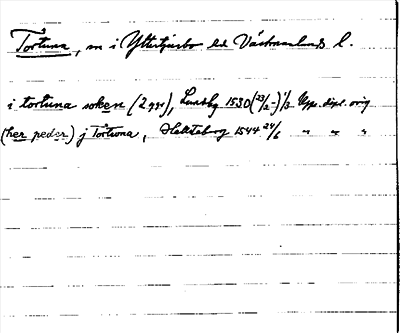 Tortuna, sn i Yttertjurbo hd Västmanlands l.
i tortuna soken (2 ggr), Lundby 1530 (23/2-) 1/3 Upps. dipl. orig
(her peder) j Tortwna, Hallstaborg 1544 24/6 " " "